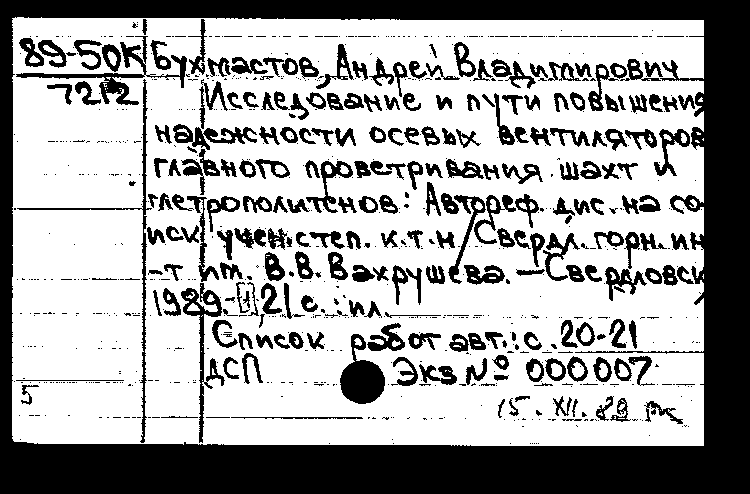 89-50К Бухмастов, Андрей Владимирович
7212 Исследование и пути повышения
надежности осевых вентиляторов
главного проветривания шахт и
метрополитенов: Автореф. дис. на со-
иск. учен. степ. к.т.н / Свердл. горн. ин
-т им. В.В. Вахрушева. – Свердловск,
1989. - 21 с. : ил.
Список работ авт.: с. 20-21
ДСП Экз № 000007
5
15. XII. 89